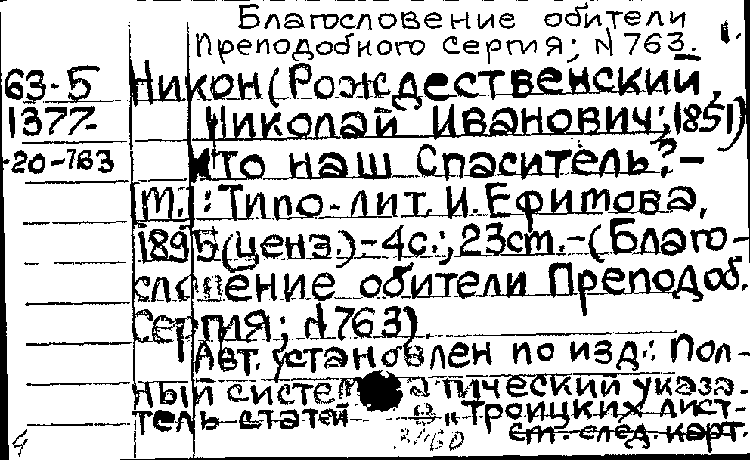 Благословение обители
Преподобного Сергия; N 763. 1.
63-5 Никон (Рождественский,
1377- Николай Иванович; 1851)
-20-763 Кто наш Спаситель? -
М.: Типо-лит. И. Ефимова,
1895 (ценз.). - 4с.; 23см. - (Благо-
словение обители Преподоб.
Сергия; N 763).
Авт. установлен по изд.: Пол-
ный систематический указа-
тель статей в "Троицких лист-
4 см. след. карт.